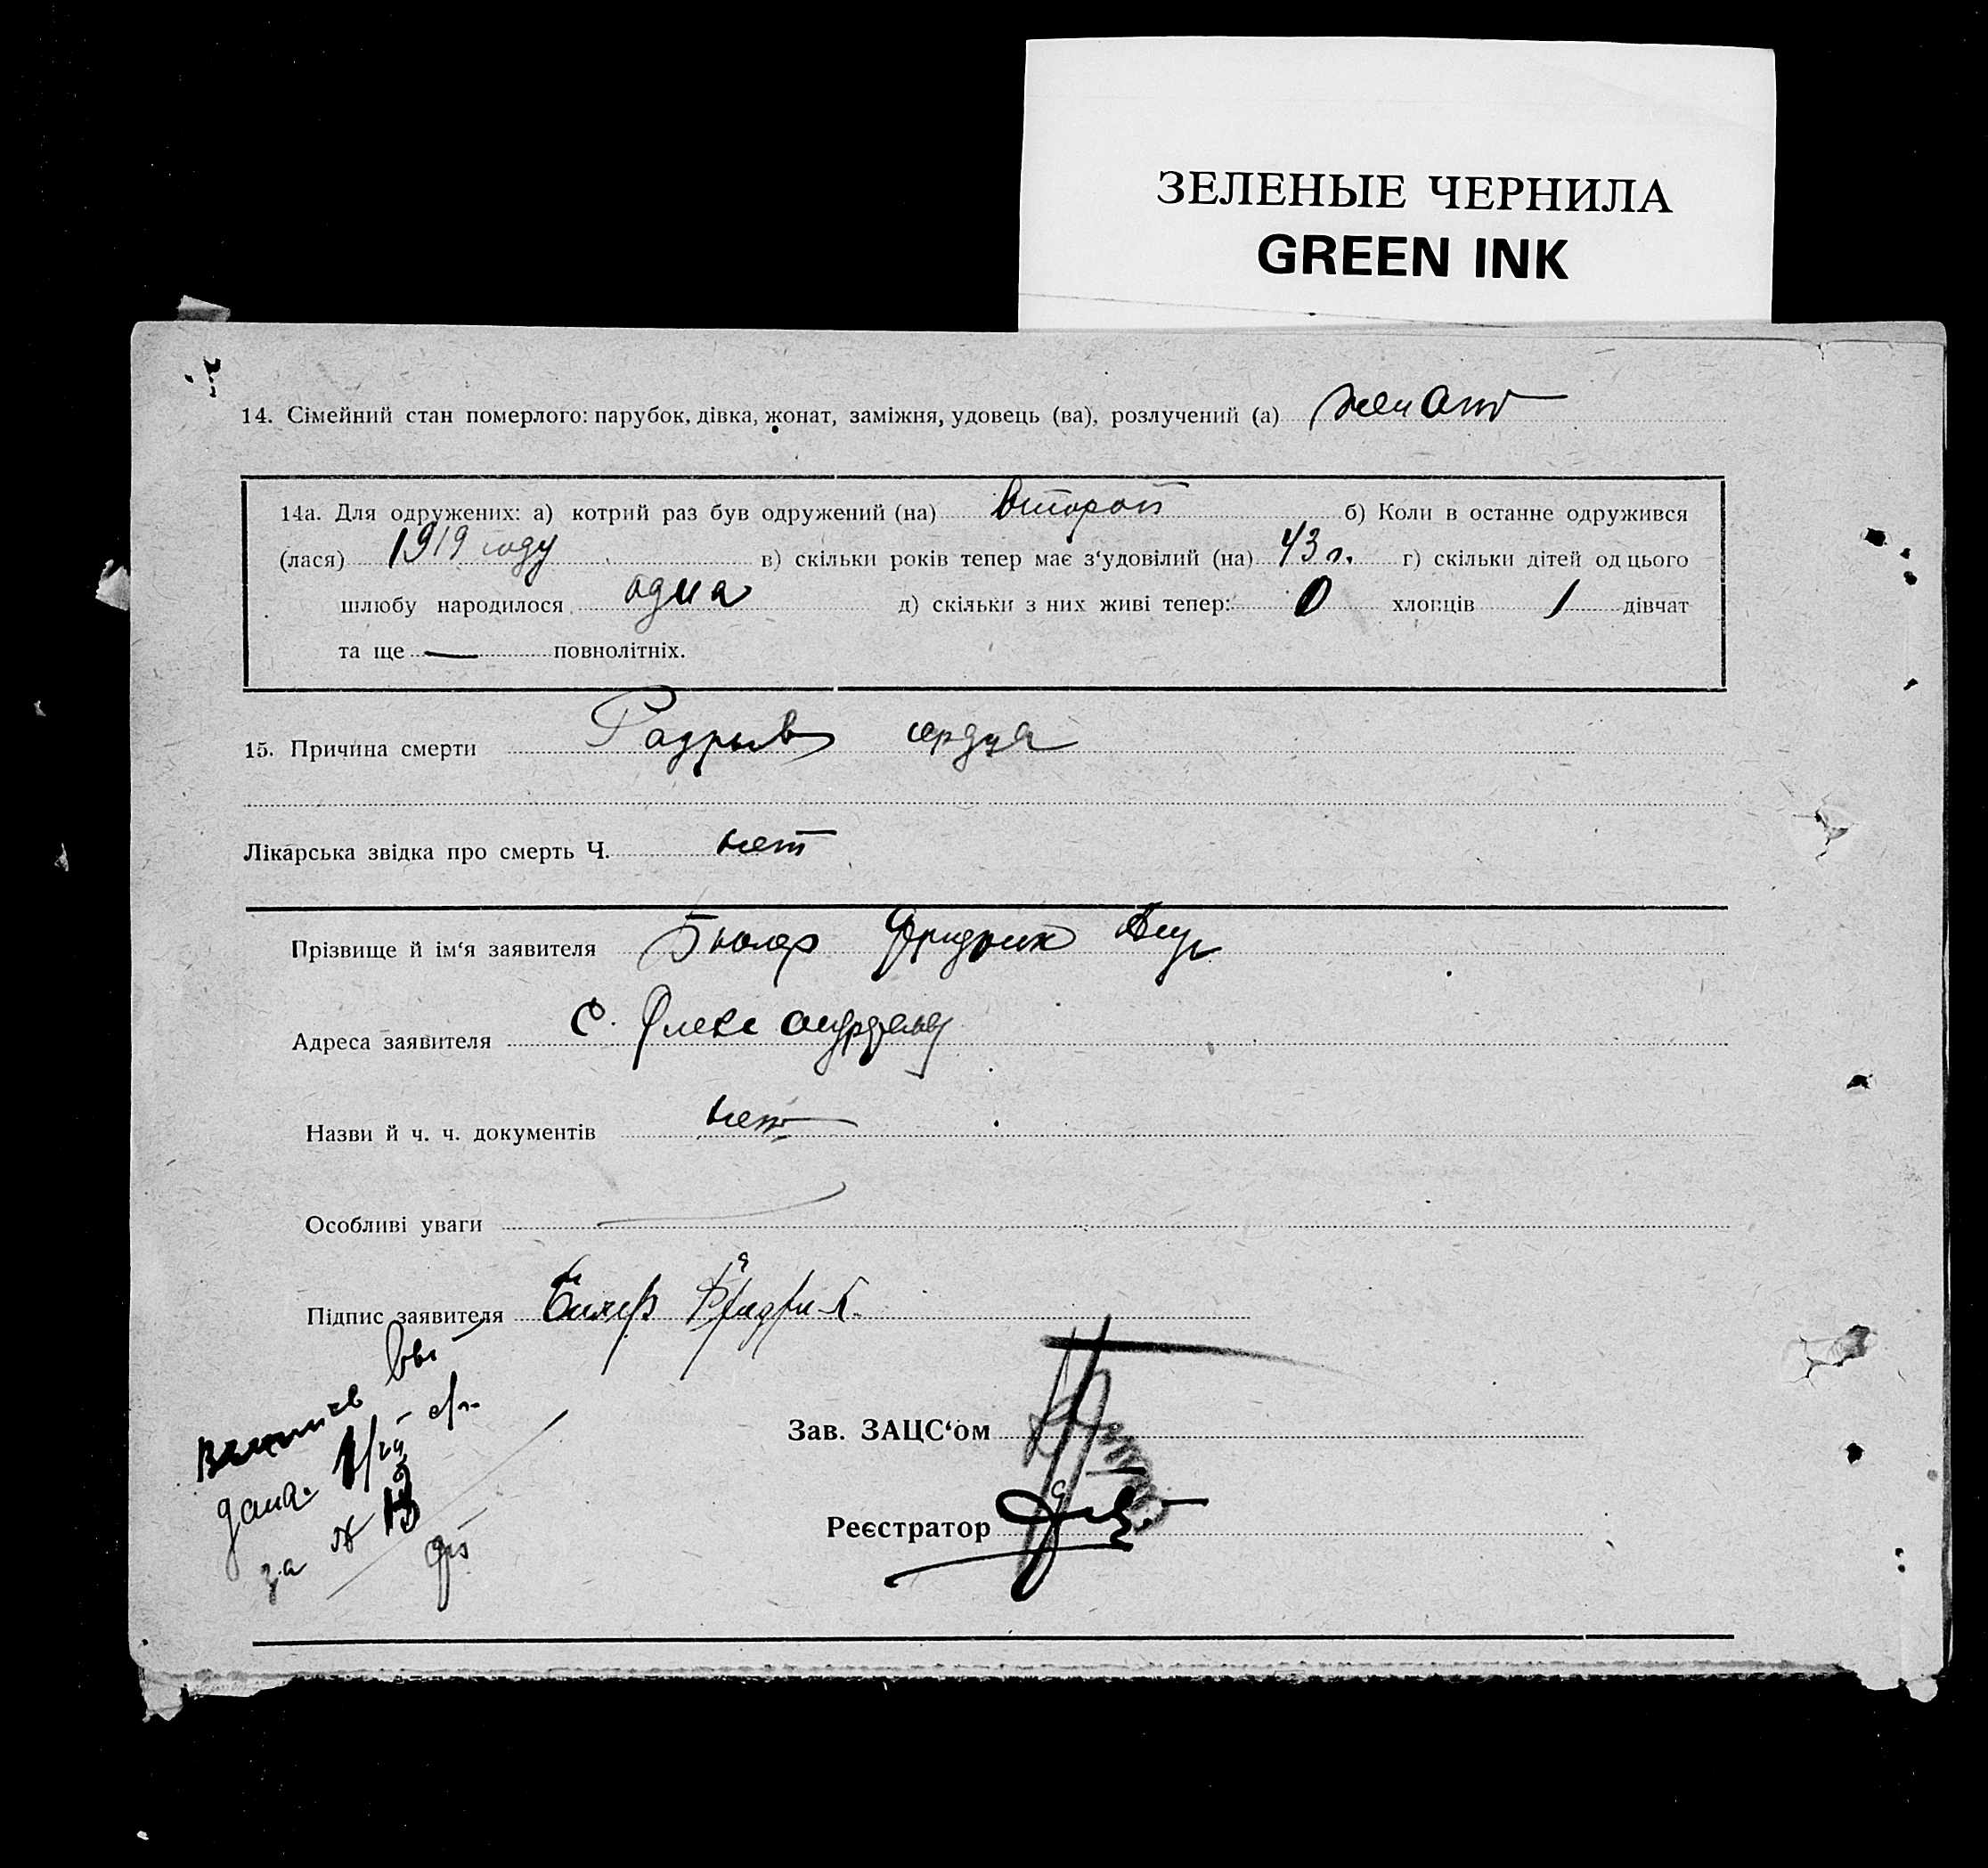 ЗЕЛЕНЫЕ ЧЕРНИЛА
GREEN INK
14. Сімейний стан померлого: парубок, дівка, жонат, заміжня, удовець (ва), розлучений (а) женат
14а. Для одружених: а) котрий раз був одружений (на) второй б) Коли в останне одружився
(лася) 1919 году в) скільки років тепер має з‘удовілий (на) 43 г. г) скільки дітей од цього
шлюбу народилося одна д) скільки з них живі тепер: 0 хлопців 1 дівчат
та ще — повнолітніх.
15. Причина смерти Разрыв сердца
Лікарська звідка про смерть Ч. нет
Прізвище й ім‘я заявителя Бюлер Фридрих
Адреса заявителя с.
Назви й ч. ч. документів нет
Особливі уваги
Підпис заявителя
Зав. ЗАЦС‘ом
Реєстратор
дана
за №